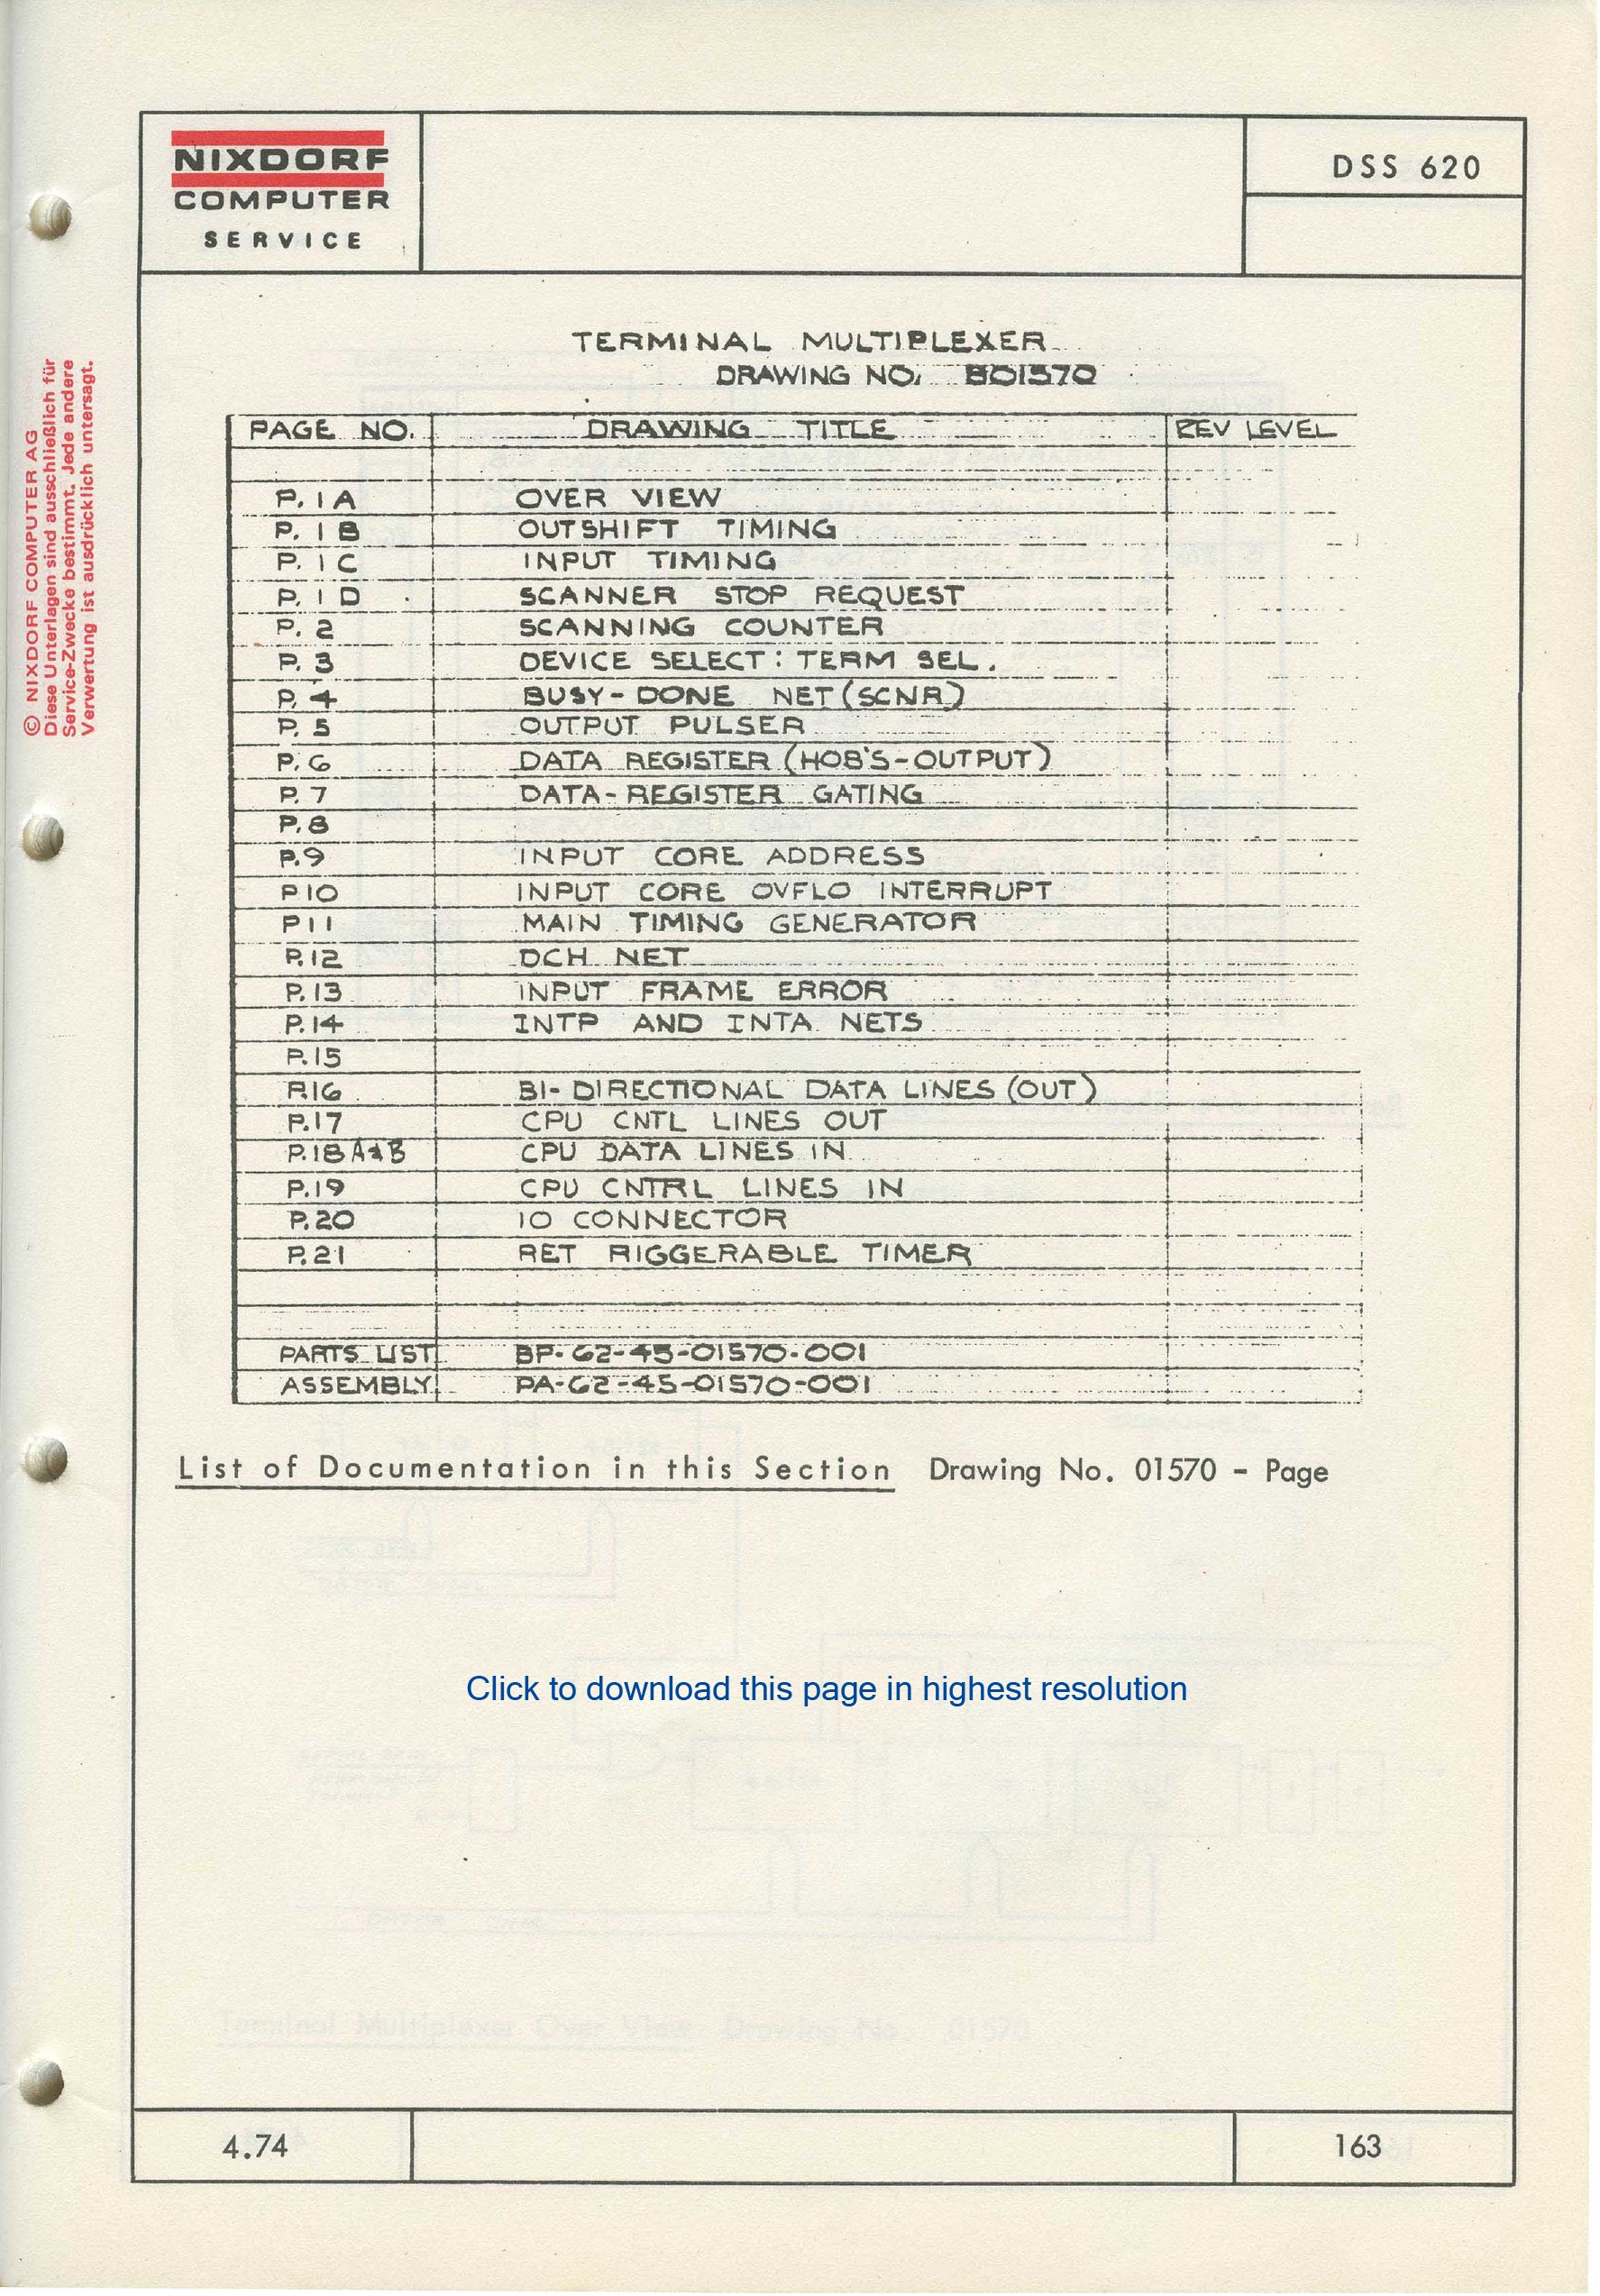 NIXDORF
COMPUTER
SERVICE
DSS 620
© NIXDORF COMPUTER AG
Diese Unterlagen sind ausschließlich für
Service-Zwecke bestimmt. Jede andere
Verwertung ist ausdrücklich untersagt.
TERMINAL MULTIPLEXER
DRAWING NO. B01570
PAGE NO. DRAWING TITLE REV LEVEL
P. 1A OVER VIEW
P. 1B OUTSHIFT TIMING
P. 1C INPUT TIMING
P. 1D SCANNER STOP REQUEST
P. 2 SCANNING COUNTER
P. 3 DEVICE SELECT: TERM SEL.
P. 4 BUSY-DONE NET (SCNR)
P. 5 OUTPUT PULSER
P. 6 DATA REGISTER (HOB'S-OUTPUT)
P. 7 DATA-REGISTER GATING
P. 8
P. 9 INPUT CORE ADDRESS
P10 INPUT CORE OVFLO INTERRUPT
P11 MAIN TIMING GENERATOR
P.12 DCH NET
P.13 INPUT FRAME ERROR
P.14 INTP AND INTA NETS
P.15
P.16 BI-DIRECTIONAL DATA LINES (OUT)
P.17 CPU CNTL LINES OUT
P.18 A&B CPU DATA LINES IN
P.19 CPU CNTRL LINES IN
P.20 IO CONNECTOR
P.21 RET RIGGERABLE TIMER
PARTS LIST BP-62-45-01570-001
ASSEMBLY PA-62-45-01570-001
List of Documentation in this Section Drawing No. 01570 - Page
Click to download this page in highest resolution
Terminal Multiplexer Over View Drawing No. 01570
4.74
163